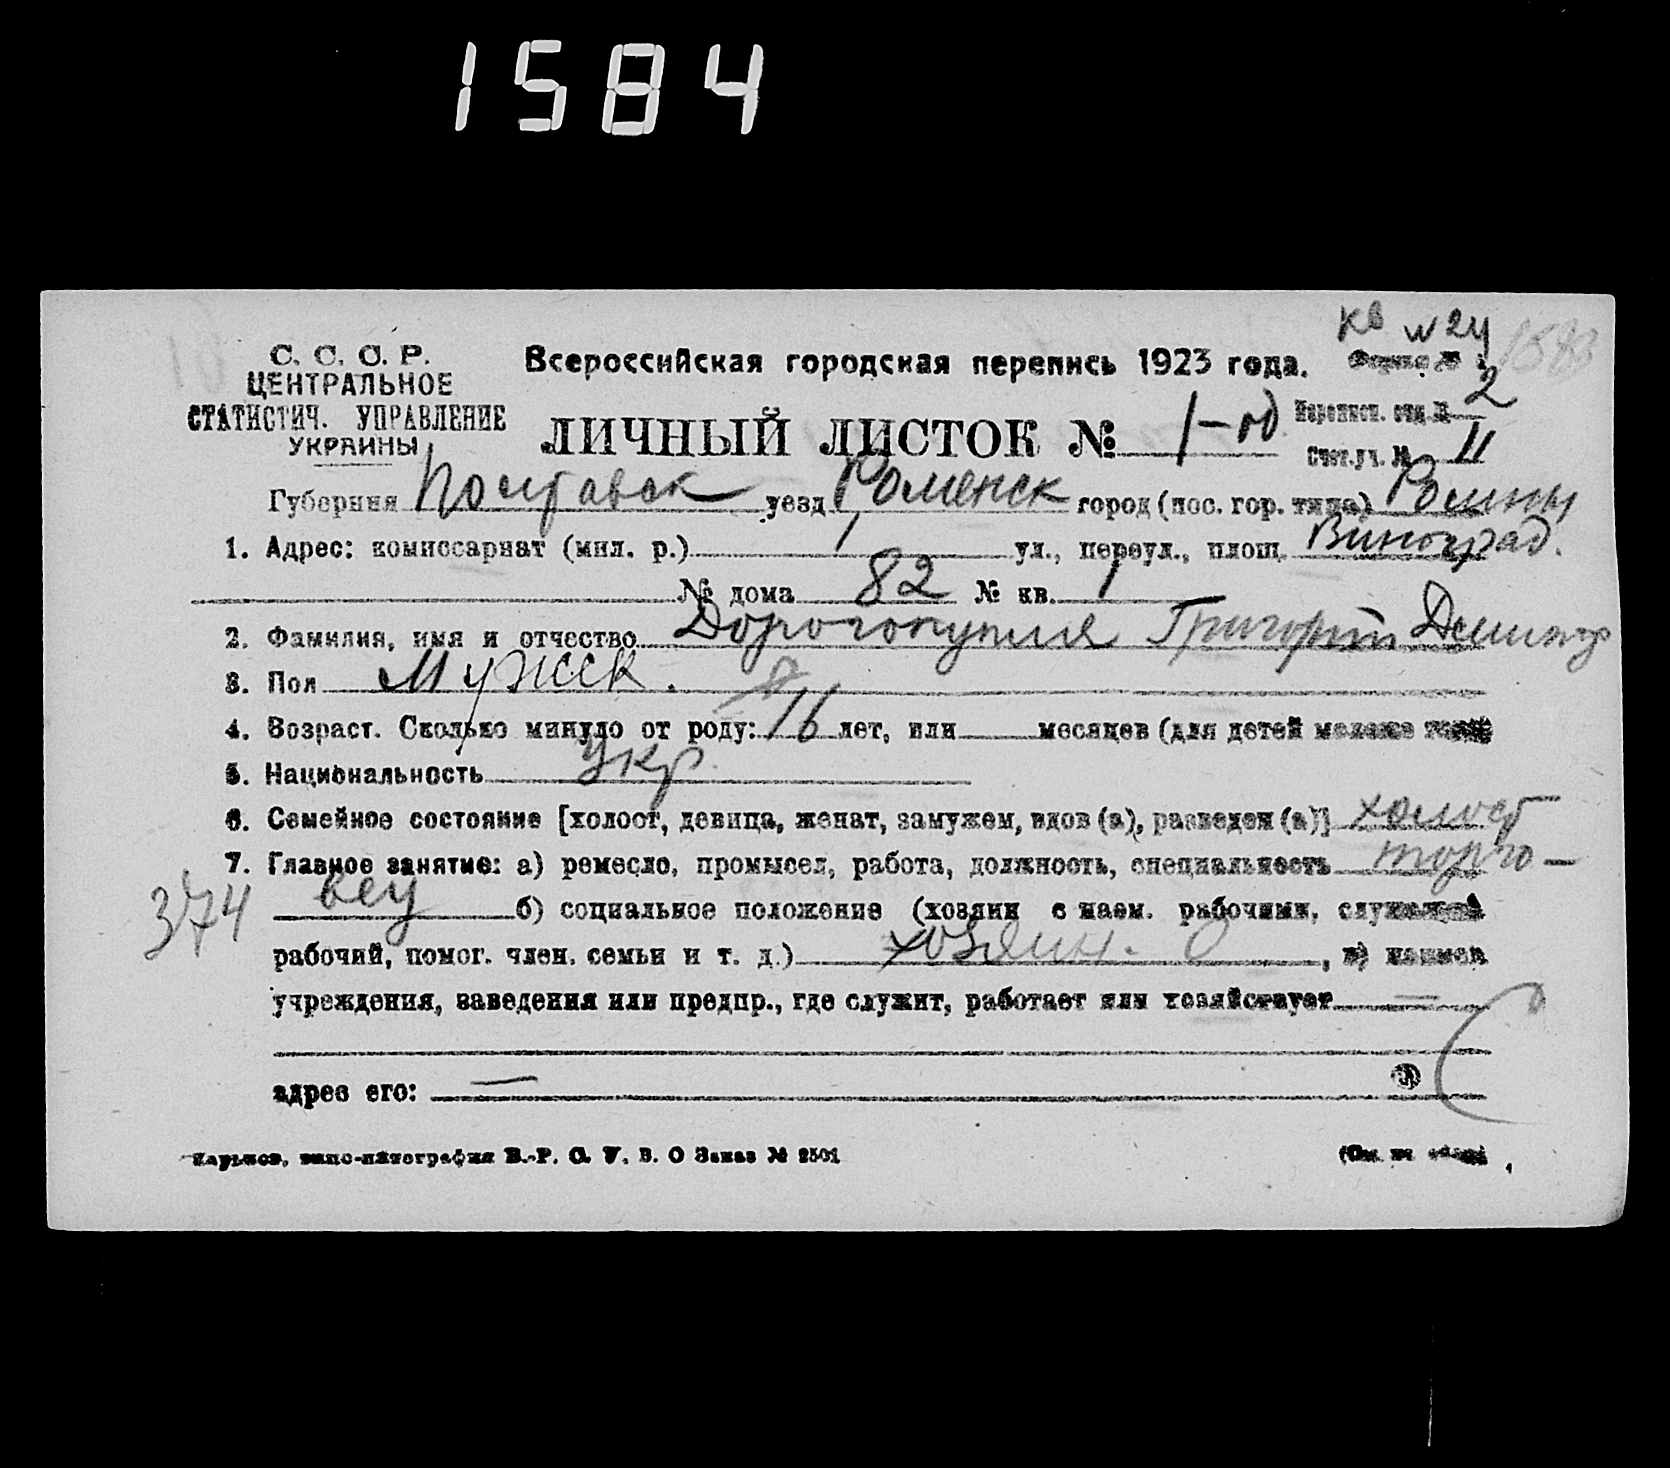 1584
кв N 24
1583
С. С. С. Р.
ЦЕНТРАЛЬНОЕ
СТАТИСТИЧ. УПРАВЛЕНИЕ
УКРАИНЫ
Всероссийская городская перепись 1923 года.
ЛИЧНЫЙ ЛИСТОК № 1-ый
2
Счет.уч. № 11
Губерния Полтавск уезд Роменск город (пос. гор. типа) Ромны
1. Адрес: комиссариат (мил. р.) 1 ул., переул., площ. Виноград.
№ дома 82 № кв. 1
2. Фамилия, имя и отчество Дорогокупля Григорий Дмитр
3. Пол Мужск.
4. Возраст. Сколько минуло от роду: 16 лет, или месяцев (для детей моложе
5. Национальность Укр.
6. Семейное состояние [холост, девица, женат, замужем, вдов (а), разведен (а)] холост
7. Главное занятие: а) ремесло, промысел, работа, должность, специальность торго-
374 вец б) социальное положение (хозяин с наем. рабочими, служащий
рабочий, помог. член. семьи и т. д.) хозяин. О , в) наимен
учреждения, заведения или предпр., где служит, работает или хозяйствует —
адрес его: —
Харьков, типо-литография В.-Р. С. У. В. О Заказ № 2501